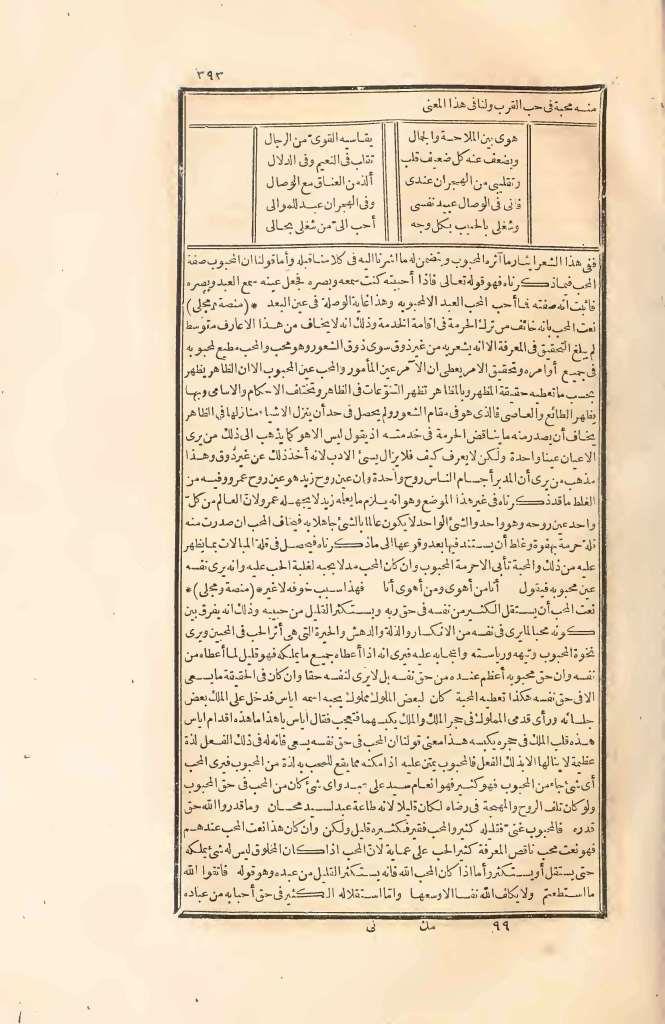 ٣٩٣
منه محبة فى حب القرب ولنا فى هذا المعنى
هوى بين الملاحة والجمال يقاسيه القوىّ من الرجال
ويضعف عنه كل ضعيف قلب تقلب فى النعيم وفى الدلال
وتقليبى من الهجران عندى ألذ من العناق مع الوصال
فانى فى الوصال عبيد نفسى وفى الهجران عبد للموالى
وشغلى بالحبيب بكل وجه أحب الىّ من شغلى بحالى
ففى هذا الشعر ايثار ما آثره المحبوب ويتضمن له ما اشرنا اليه فى كلامنا قبله وأما قولنا ان المحبوب صفة
المحب فما ذكرناه فهو قوله تعالى فاذا أحببته كنت سمعه وبصره فجعل عينه سمع العبد وبصره
فاثبت انه صفته فما أحب المحب العبد الا محبوبه وهذا غاية الوصلة فى عين البعد *(منصة ومجلى)*
نعت المحب بانه خائف من ترك الحرمة فى اقامة الخدمة وذلك انه لا يخاف من هذا الا عارف متوسط
لم يبلغ التحقيق فى المعرفة الا انه يشعر به من غير ذوق سوى ذوق الشعور وهو محب والمحب مطيع لمحبوبه
فى جميع أوامره وتحقيق الامر يعطى ان الآمر عين المأمور والمحب عين المحبوب الا ان الظاهر يظهر
بحسب ما تعطيه حقيقة المظهر وبالمظاهر تظهر التنوّعات فى الظاهر وتختلف الاحكام والاسامى وبها
يظهر الطائع والعاصى فالذى هو فى مقام الشعور ولم يحصل فى حد أن ينزل الاشياء منازلها فى الظاهر
يخاف أن يصدر منه ما يناقض الحرمة فى خدمته اذ يقول ليس الا هو كما يذهب الى ذلك من يرى
الاعيان عينا واحدة ولكن لا يعرف كيف فلا يزال يسىء الادب لانه أخذ ذلك عن غير ذوق وهذا
مذهب من يرى أن المدبر أجسام الناس روح واحدة وان عين روح زيد هو عين روح عمرو وفيه من
الغلط ما قد ذكرناه فى غير هذا الموضع وهو انه يلزم ما يعلمه زيد لا يجهله عمرو لان العالم من كل
واحد عين روحه وهو واحد والشئ الواحد لا يكون عالما بالشئ جاهلا به فيخاف المحب ان صدرت منه
قلة حرمة بهفوة وغلط أن يستند فيها بعد وقوعها الى ما ذكرناه فيحصل فى قلة المبالات بما يظهر
عليه من ذلك والمحبة تأبى الا حرمة المحبوب وان كان المحب مدلا بحبه لغلبة الحب عليه وانه يرى نفسه
عين محبوبه فيقول أنا من أهوى ومن أهوى أنا فهذا سبب خوفه لا غير *(منصة ومجلى)*
نعت المحب أن يستقل الكثير من نفسه فى حق ربه ويستكثر القليل من حبيبه وذلك انه يفرق بين
كونه محبا لما يرى فى نفسه من الانكسار والذلة والدهش والحيرة التى هى أثر الحب فى المحبين ويرى
نخوة المحبوب وتيهه ورياسته واعجابه عليه فيرى انه اذا أعطاه جميع ما يملكه فهو قليل لما أعطاه من
نفسه وان حق محبوبه أعظم عنده من حق نفسه بل لا يرى لنفسه حقا وان كان فى الحقيقة ما يسعى
الا فى حق نفسه هكذا تعطيه المحبة كان لبعض الملوك مملوك يحبه اسمه اياس فدخل على الملك بعض
جلسائه ورأى قدمى المملوك فى حجر الملك والملك يكبسهما فتعجب فقال اياس يا هذا ما هذه اقدام اياس
هذه قلب الملك فى حجره يكبسه هذا معنى قولنا ان المحب فى حق نفسه يسعى فانه له فى ذلك الفعل لذة
عظيمة لا ينالها الا بذلك الفعل فالمحبوب يمتن عليه اذا مكنه مما يقع للمحب به لذة من المحبوب فيرى المحب
أى شئ جاء من المحبوب فهو كثير فهو انعام سيد على عبد وأى شئ كان من المحب فى حق المحبوب
ولو كان تلف الروح والمهجة فى رضاه لكان قليلا لانه طاعة عبد لسيد محسان وما قدروا الله حق
قدره فالمحبوب غنىّ فقليله كثير والمحب فقير فكثيره قليل ولكن وان كان هذا نعت المحب عندهم
فهو نعت محب ناقص المعرفة كثير الحب على عماية لان المحب اذا كان المخلوق ليس له شئ يملكه
حتى يستقل أو يستكثر وأما اذا كان المحب الله فانه يستكثر القليل من عبده وهو قوله فاتقوا الله
ما استطعتم ولا يكلف الله نفسا الا وسعها وانما استقلاله الكثير فى حق أحبابه من عباده
٩٩ مك نى